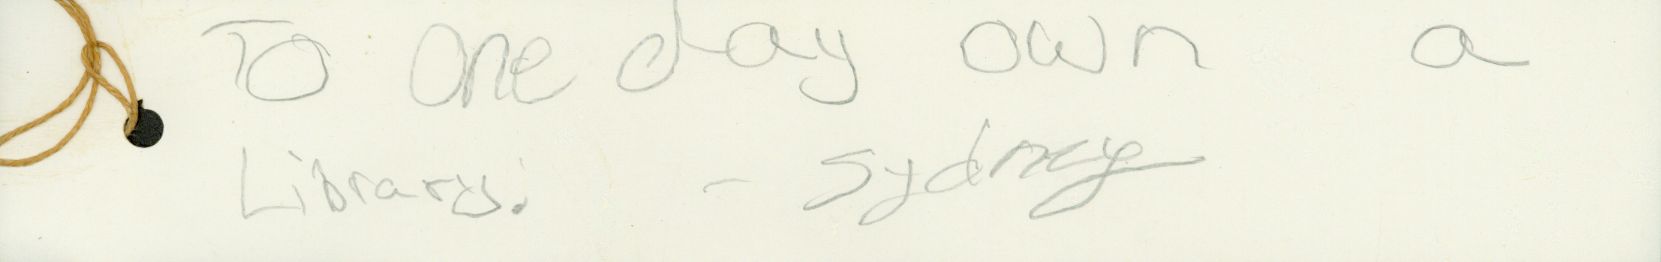 To one day own a
Library! - Sydney